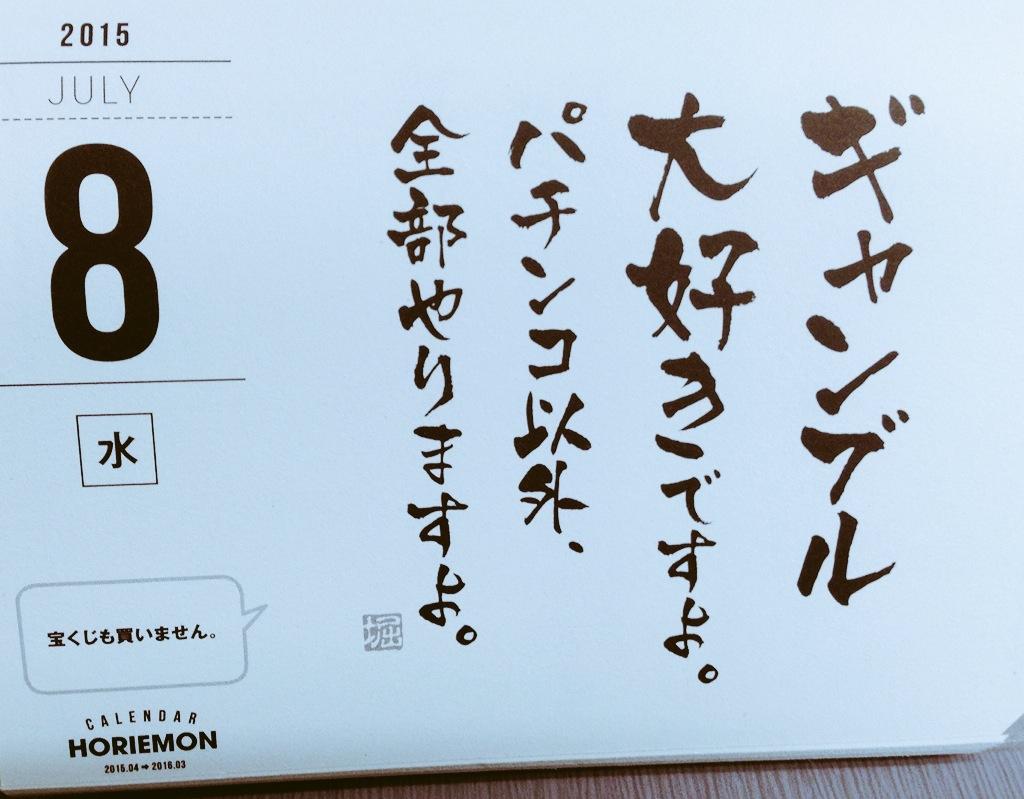 2015
JULY
8
水
ギャンブル
大好きですよ。
パチンコ以外、
全部やりますよ。
堀
宝くじも買いません。
CALENDAR
HORIEMON
2015.04➡2016.03